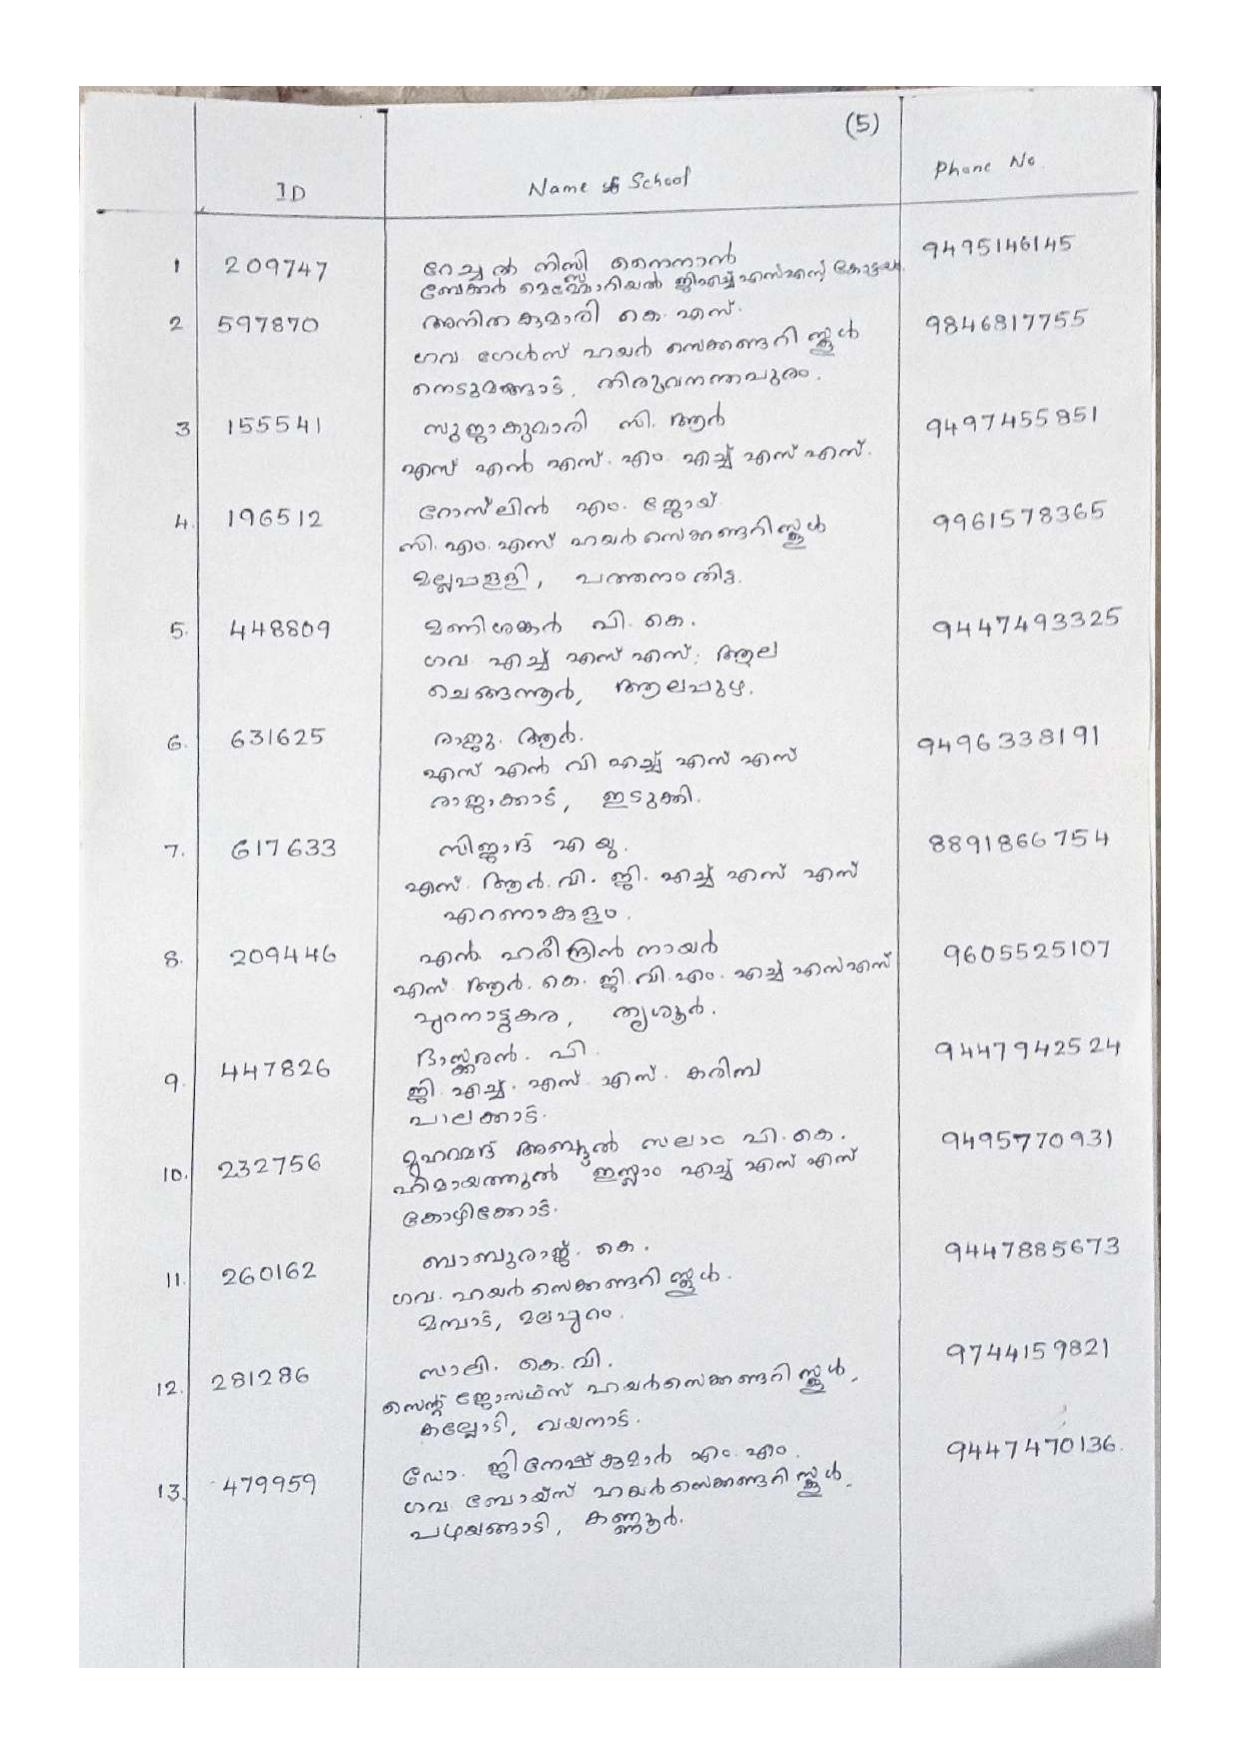 (5)
ID Name & School Phone No
1 209747 റേച്ചൽ നിസ്സി നൈനാൻ 9495146145
ബേക്കർ മെമ്മോറിയൽ ജിഎച്ച്എസ്എസ് കോട്ടയം
2 597870 അനിതകുമാരി കെ. എസ്. 9846817755
ഗവ ഗേൾസ് ഹയർ സെക്കണ്ടറി സ്കൂൾ
നെടുമങ്ങാട്, തിരുവനന്തപുരം.
3 155541 സുജാകുമാരി സി. ആർ 9497455851
എസ് എൻ എസ്. എം. എച്ച് എസ് എസ്.
4. 196512 റോസ്‌ലിൻ എം. ജോയ് 9961578365
സി. എം. എസ് ഹയർ സെക്കണ്ടറി സ്കൂൾ
മല്ലപ്പള്ളി, പത്തനംതിട്ട.
5. 448809 മണിശങ്കർ വി. കെ. 9447493325
ഗവ എച്ച് എസ് എസ്; ആല
ചെങ്ങന്നൂർ, ആലപ്പുഴ.
6. 631625 രാജു. ആർ. 9496338191
എസ് എൻ വി എച്ച് എസ് എസ്
രാജാക്കാട്, ഇടുക്കി.
7. 617633 സിജാദ് എ യു. 8891866754
എസ്. ആർ. വി. ജി. എച്ച് എസ് എസ്
എറണാകുളം.
8. 209446 എൻ. ഹരീന്ദ്രൻ നായർ 9605525107
എസ്. ആർ. കെ. ജി. വി. എം. എച്ച് എസ്എസ്
പുറനാട്ടുകര, തൃശൂർ.
9. 447826 ഭാസ്കരൻ. പി. 9447942524
ജി. എച്ച്. എസ്. എസ്. കരിമ്പ
പാലക്കാട്.
10. 232756 മുഹമ്മദ് അബ്ദുൽ സലാം പി. കെ. 9495770931
ഹിമായത്തുൽ ഇസ്ലാം എച്ച് എസ് എസ്
കോഴിക്കോട്.
11. 260162 ബാബുരാജ്. കെ. 9447885673
ഗവ. ഹയർ സെക്കണ്ടറി സ്കൂൾ.
മമ്പാട്, മലപ്പുറം.
12. 281286 സാലി. കെ. വി. 9744159821
സെന്റ് ജോസഫ്സ് ഹയർസെക്കണ്ടറി സ്കൂൾ,
കല്ലോടി, വയനാട്.
13. 479959 ഡോ. ജിനേഷ്കുമാർ എം. എം. 9447470136.
ഗവ ബോയ്സ് ഹയർസെക്കണ്ടറി സ്കൂൾ,
പഴയങ്ങാടി, കണ്ണൂർ.